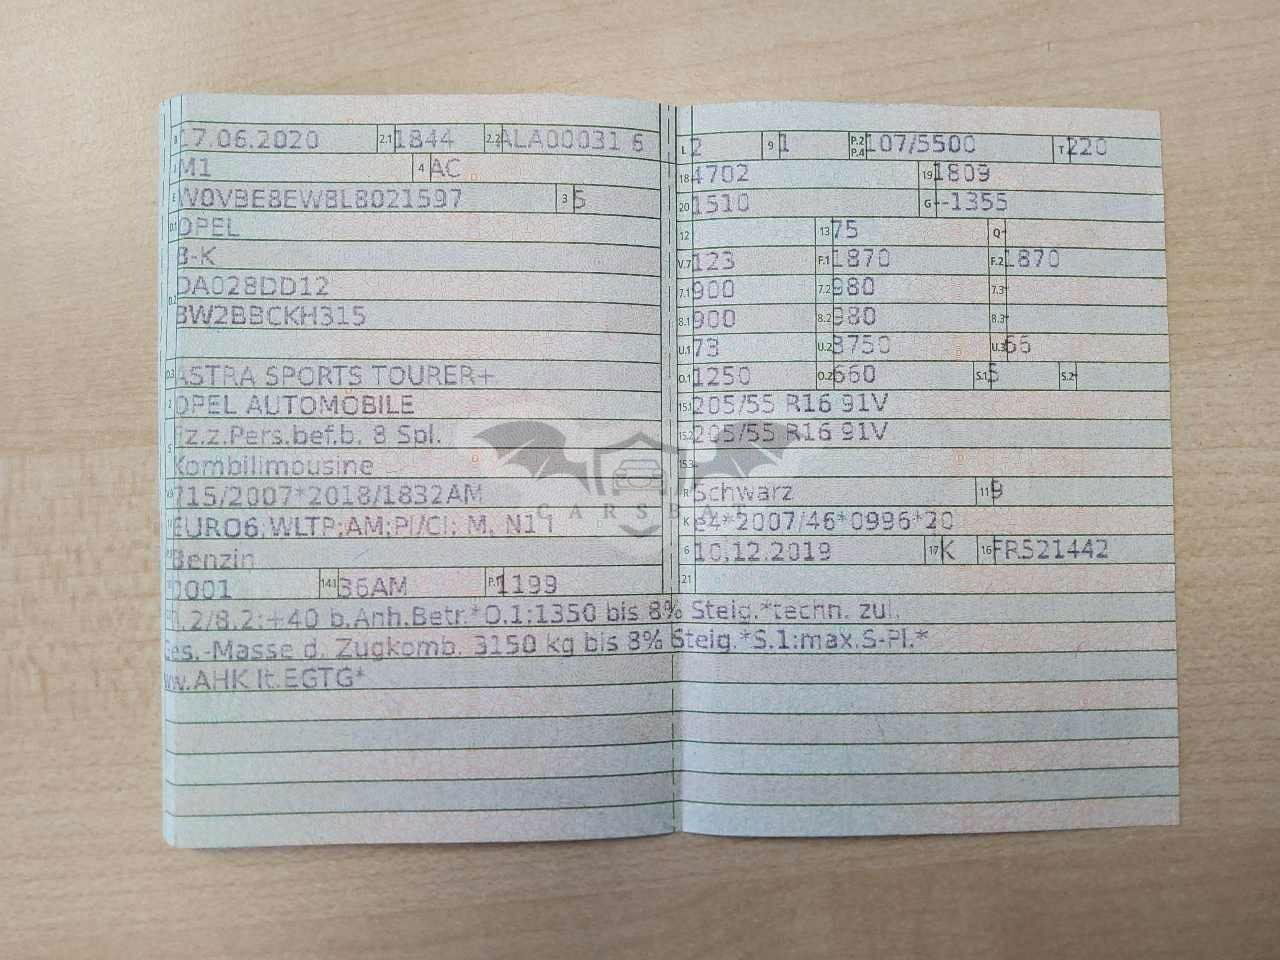 B 17.06.2020 2.1 1844 2.2 ALA00031 6
J M1 4 AC
E W0VBE8EW8L8021597 3 5
D.1 OPEL
B-K
D.2 DA028DD12
BW2BBCKH315
D.3 ASTRA SPORTS TOURER+
2 OPEL AUTOMOBILE
5 Fz.z.Pers.bef.b. 8 Spl.
Kombilimousine
715/2007*2018/1832AM
EURO6;WLTP;AM;PI/CI; M, N1 I
Benzin
0001 14.1 36AM P.1 1199
L 2 9 1 P.2 P.4 107/5500 T 220
18 4702 19 1809
20 1510 G --1355
12 13 75 Q -
V.7 123 F.1 1870 F.2 1870
7.1 900 7.2 980 7.3 -
8.1 900 8.2 980 8.3 -
U.1 73 U.2 3750 U.3 66
O.1 1250 O.2 660 S.1 5 S.2 -
15.1 205/55 R16 91V
15.2 205/55 R16 91V
15.3 -
R Schwarz 11 9
K e4*2007/46*0996*20
6 10.12.2019 17 K 16 FR521442
21
7.2/8.2:+40 b.Anh.Betr.*O.1:1350 bis 8% Steig.*techn. zul.
Ges.-Masse d. Zugkomb. 3150 kg bis 8% Steig.*S.1:max.S-Pl.*
ww.AHK lt.EGTG*
CARSBAT